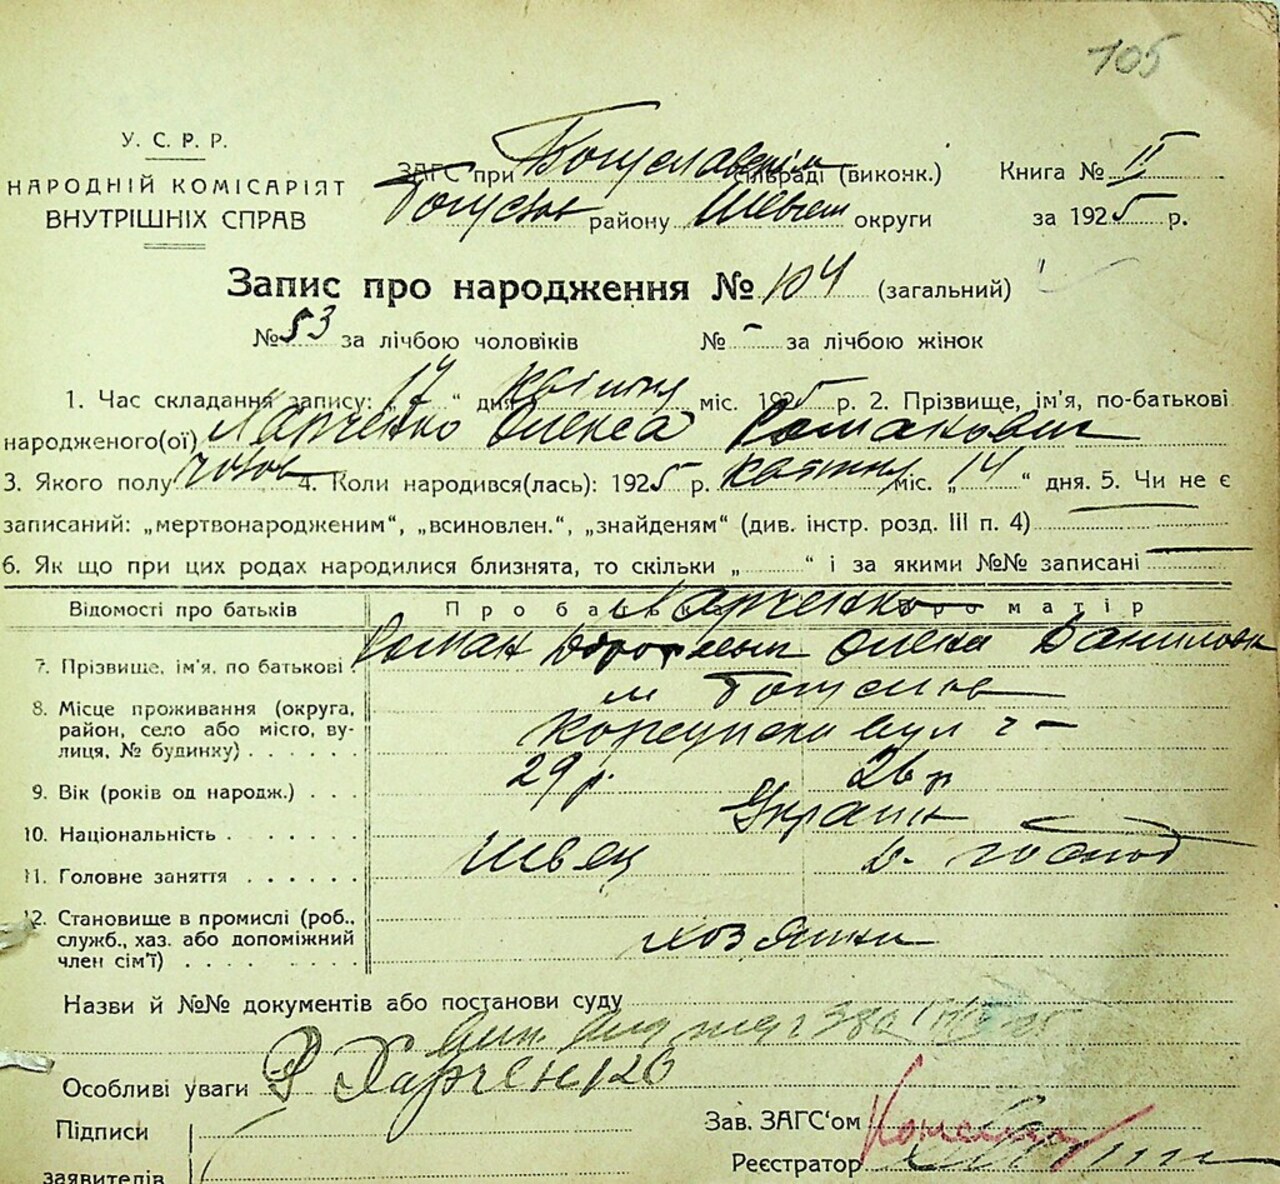 105
У. С. Р. Р.
НАРОДНІЙ КОМІСАРІЯТ
ВНУТРІШНІХ СПРАВ
ЗАГС при Богуславськім сільраді (виконк.)
району Шевчен округи
Книга № II
за 1925 р.
Запис про народження № 104 (загальний)
№ 53 за лічбою чоловіків № - за лічбою жінок
1. Час складання запису: „17“ дня квітня міс. 1925 р. 2. Прізвище, ім'я, по-батькові
народженого(ої) Харченко Олекса Романович
3. Якого полу чолов 4. Коли народився(лась): 1925 р. квітня міс. „14“ дня. 5. Чи не є
записаний: „мертвонародженим“, „всиновлен.“, „знайденям“ (див. інстр. розд. III п. 4)
6. Як що при цих родах народилися близнята, то скільки „ “ і за якими №№ записані
Відомості про батьків Про батька Харченко Про матір
7. Прізвище, ім'я, по батькові Роман Олена Данилов
8. Місце проживання (округа, район, село або місто, вулиця, № будинку) м Богуслав
Корсунська вул
9. Вік (років од народж.) 29 р. 26 р
10. Національність Україн
11. Головне заняття Швец д. господ
12. Становище в промислі (роб., служб., хаз. або допоміжний член сім'ї) хозяини
Назви й №№ документів або постанови суду
Особливі уваги Р Харченко
Підписи
заявителів
Зав. ЗАГС'ом
Реєстратор